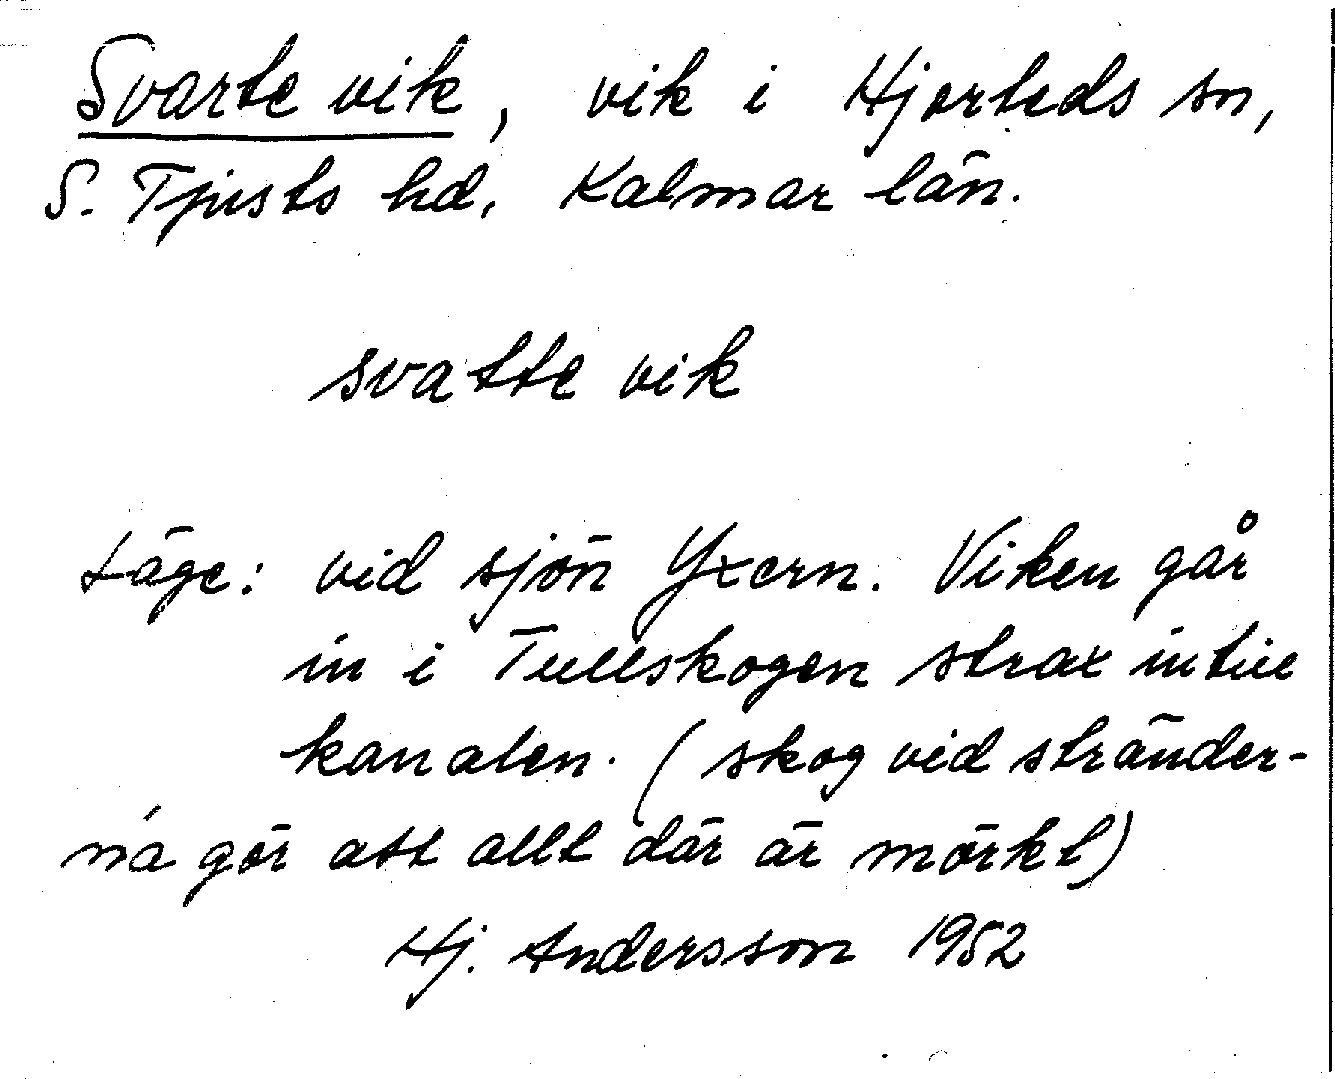 Svarte vik, vik i Hjorteds sn,
S. Tjusts hd, Kalmar län.
svatte vik
Läge: vid sjön Yxern. Viken går
in i Tullskogen strax intill
kanalen. (skog vid stränder-
na gör att allt där är mörkt)
Hj. Andersson 1952